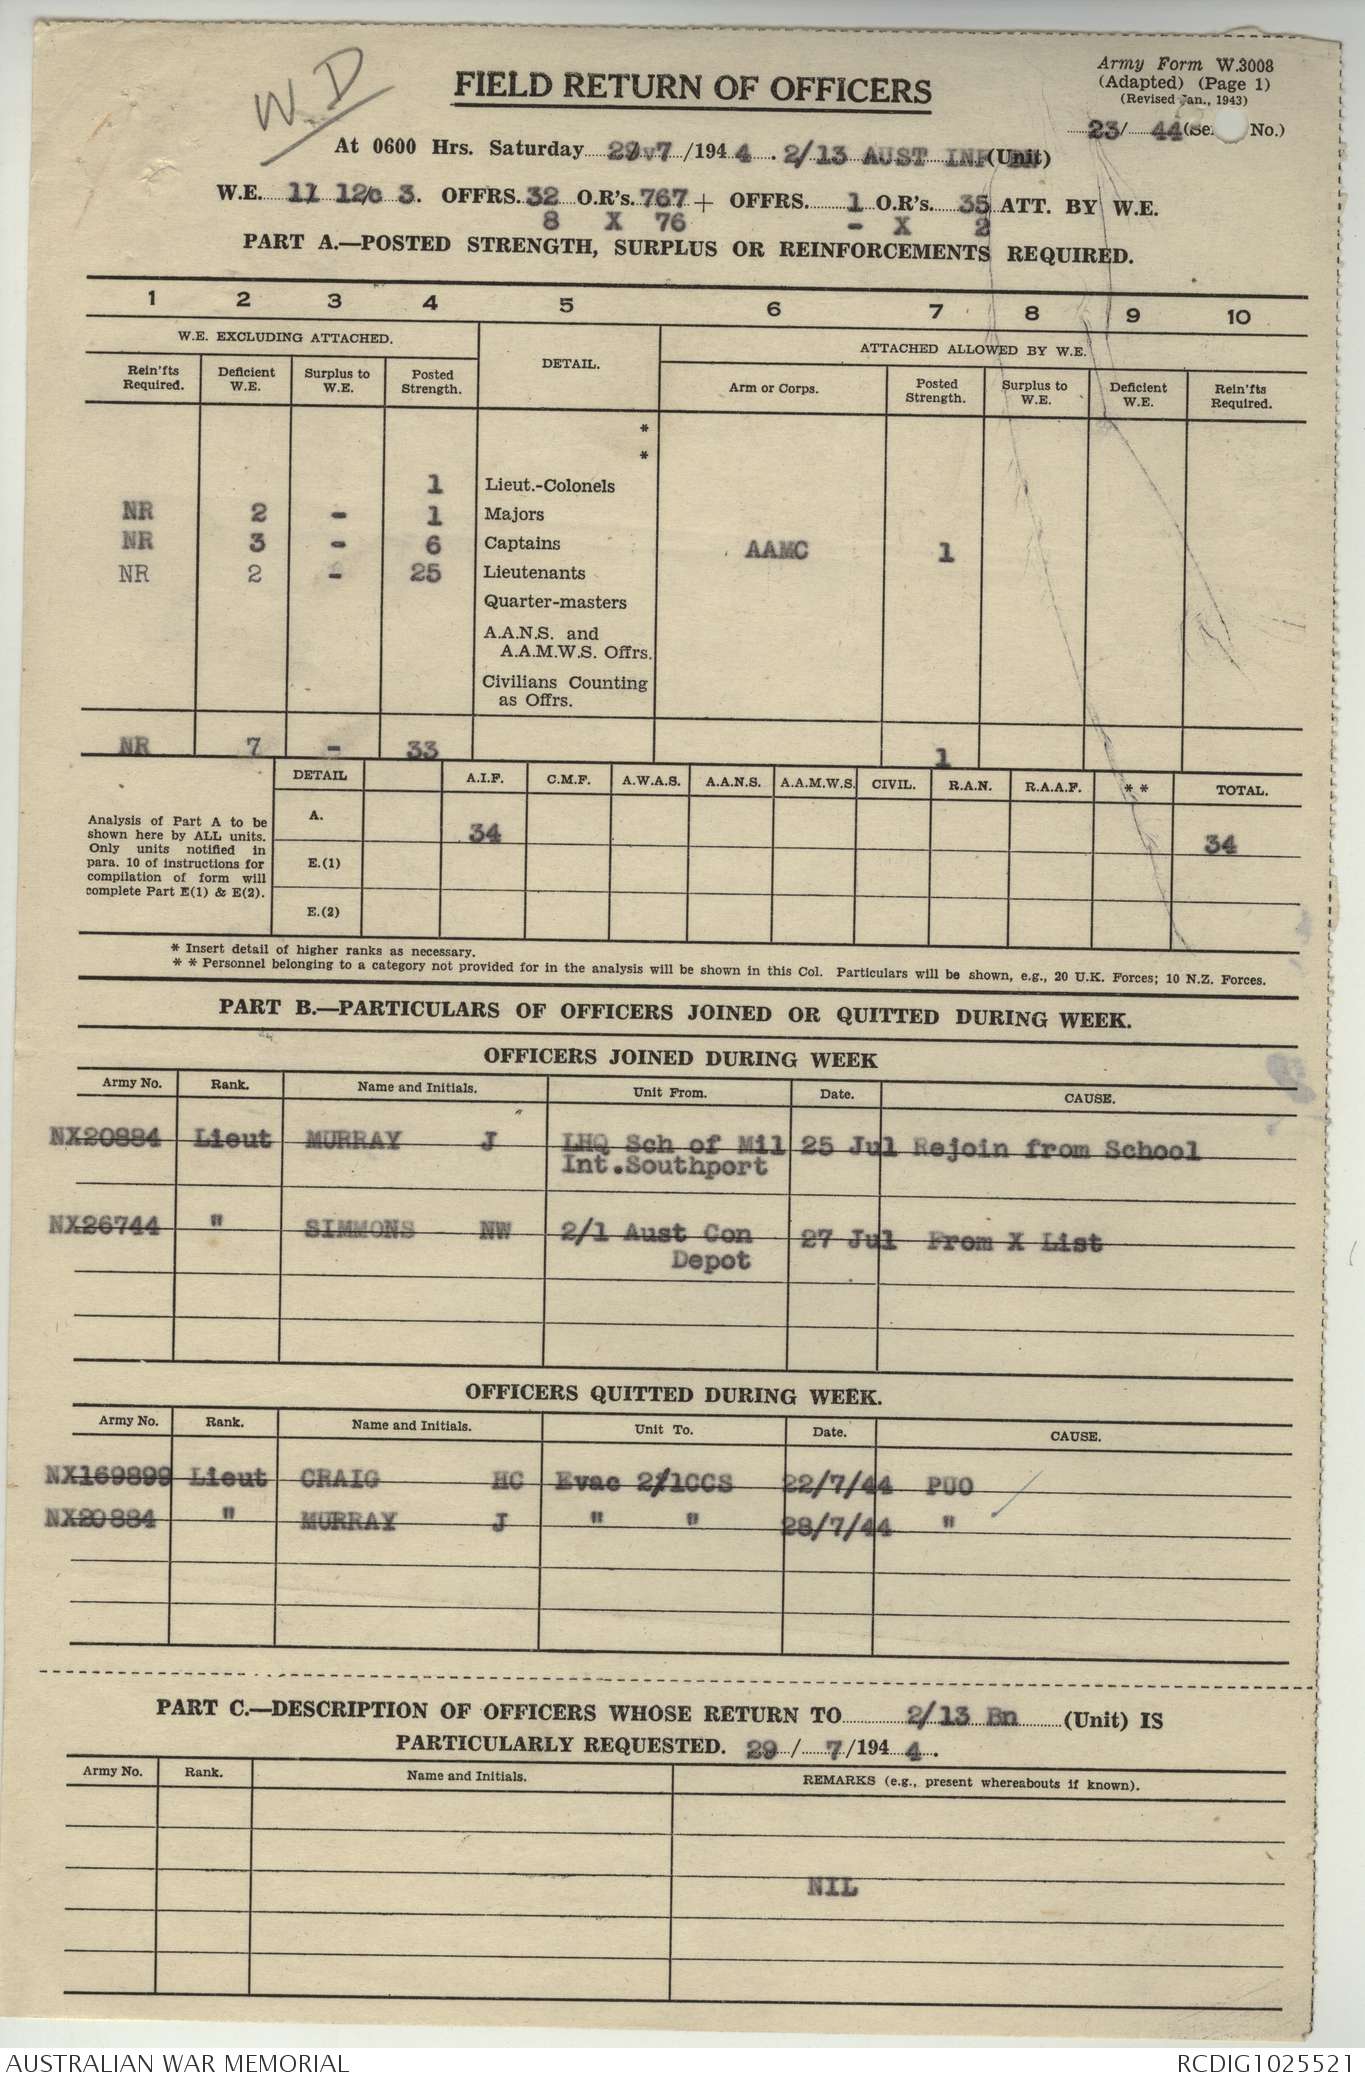 W.D
FIELD RETURN OF OFFICERS
Army Form W.3008
(Adapted) (Page 1)
(Revised Jan., 1943)
23/ 44 (Ser No.)
At 0600 Hrs. Saturday 29/7/1944. 2/13 AUST INF BN (Unit)
W.E. 11 12c 3. OFFRS. 32 O.R's. 767 + OFFRS. 1 O.R's. 35 ATT. BY W.E.
8 X 76 - X 2
PART A.—POSTED STRENGTH, SURPLUS OR REINFORCEMENTS REQUIRED.
1 2 3 4 5 6 7 8 9 10
W.E. EXCLUDING ATTACHED. DETAIL. ATTACHED ALLOWED BY W.E.
Rein'fts Required. Deficient W.E. Surplus to W.E. Posted Strength. Arm or Corps. Posted Strength. Surplus to W.E. Deficient W.E. Rein'fts Required.
*
*
1 Lieut.-Colonels
NR 2 - 1 Majors
NR 3 - 6 Captains AAMC 1
NR 2 - 25 Lieutenants
Quarter-masters
A.A.N.S. and
A.A.M.W.S. Offrs.
Civilians Counting
as Offrs.
NR 7 - 33 1
DETAIL A.I.F. C.M.F. A.W.A.S. A.A.N.S. A.A.M.W.S. CIVIL. R.A.N. R.A.A.F. * * TOTAL.
Analysis of Part A to be
shown here by ALL units.
Only units notified in
para. 10 of instructions for
compilation of form will
complete Part E(1) & E(2).
A. 34 34
E.(1)
E.(2)
* Insert detail of higher ranks as necessary.
* * Personnel belonging to a category not provided for in the analysis will be shown in this Col. Particulars will be shown, e.g., 20 U.K. Forces; 10 N.Z. Forces.
PART B.—PARTICULARS OF OFFICERS JOINED OR QUITTED DURING WEEK.
OFFICERS JOINED DURING WEEK
Army No. Rank. Name and Initials. Unit From. Date. CAUSE.
NX20884 Lieut MURRAY J LHQ Sch of Mil 25 Jul Rejoin from School
Int.Southport
NX26744 " SIMMONS NW 2/1 Aust Con 27 Jul From X List
Depot
OFFICERS QUITTED DURING WEEK.
Army No. Rank. Name and Initials. Unit To. Date. CAUSE.
NX169899 Lieut CRAIG HC Evac 2/1CCS 22/7/44 PUO
NX20884 " MURRAY J " " 28/7/44 "
PART C.—DESCRIPTION OF OFFICERS WHOSE RETURN TO 2/13 Bn (Unit) IS
PARTICULARLY REQUESTED. 29/ 7/1944.
Army No. Rank. Name and Initials. REMARKS (e.g., present whereabouts if known).
NIL
AUSTRALIAN WAR MEMORIAL RCDIG1025521